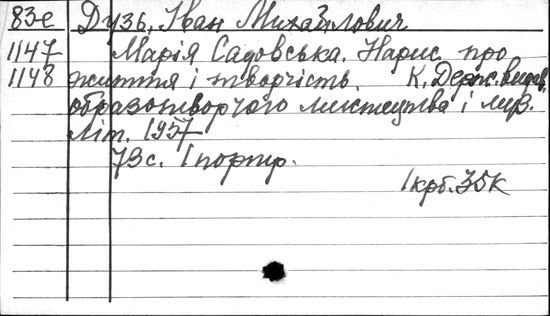 83-е Дузь, Іван Михайлович
1147 Марія Садовська. Нарис про
1148 життя і творчість. К. Держ. видав.
образотворчого мистецтва і муз.
літ. 1957
73 с. 1 портр.
1 крб. 35 к